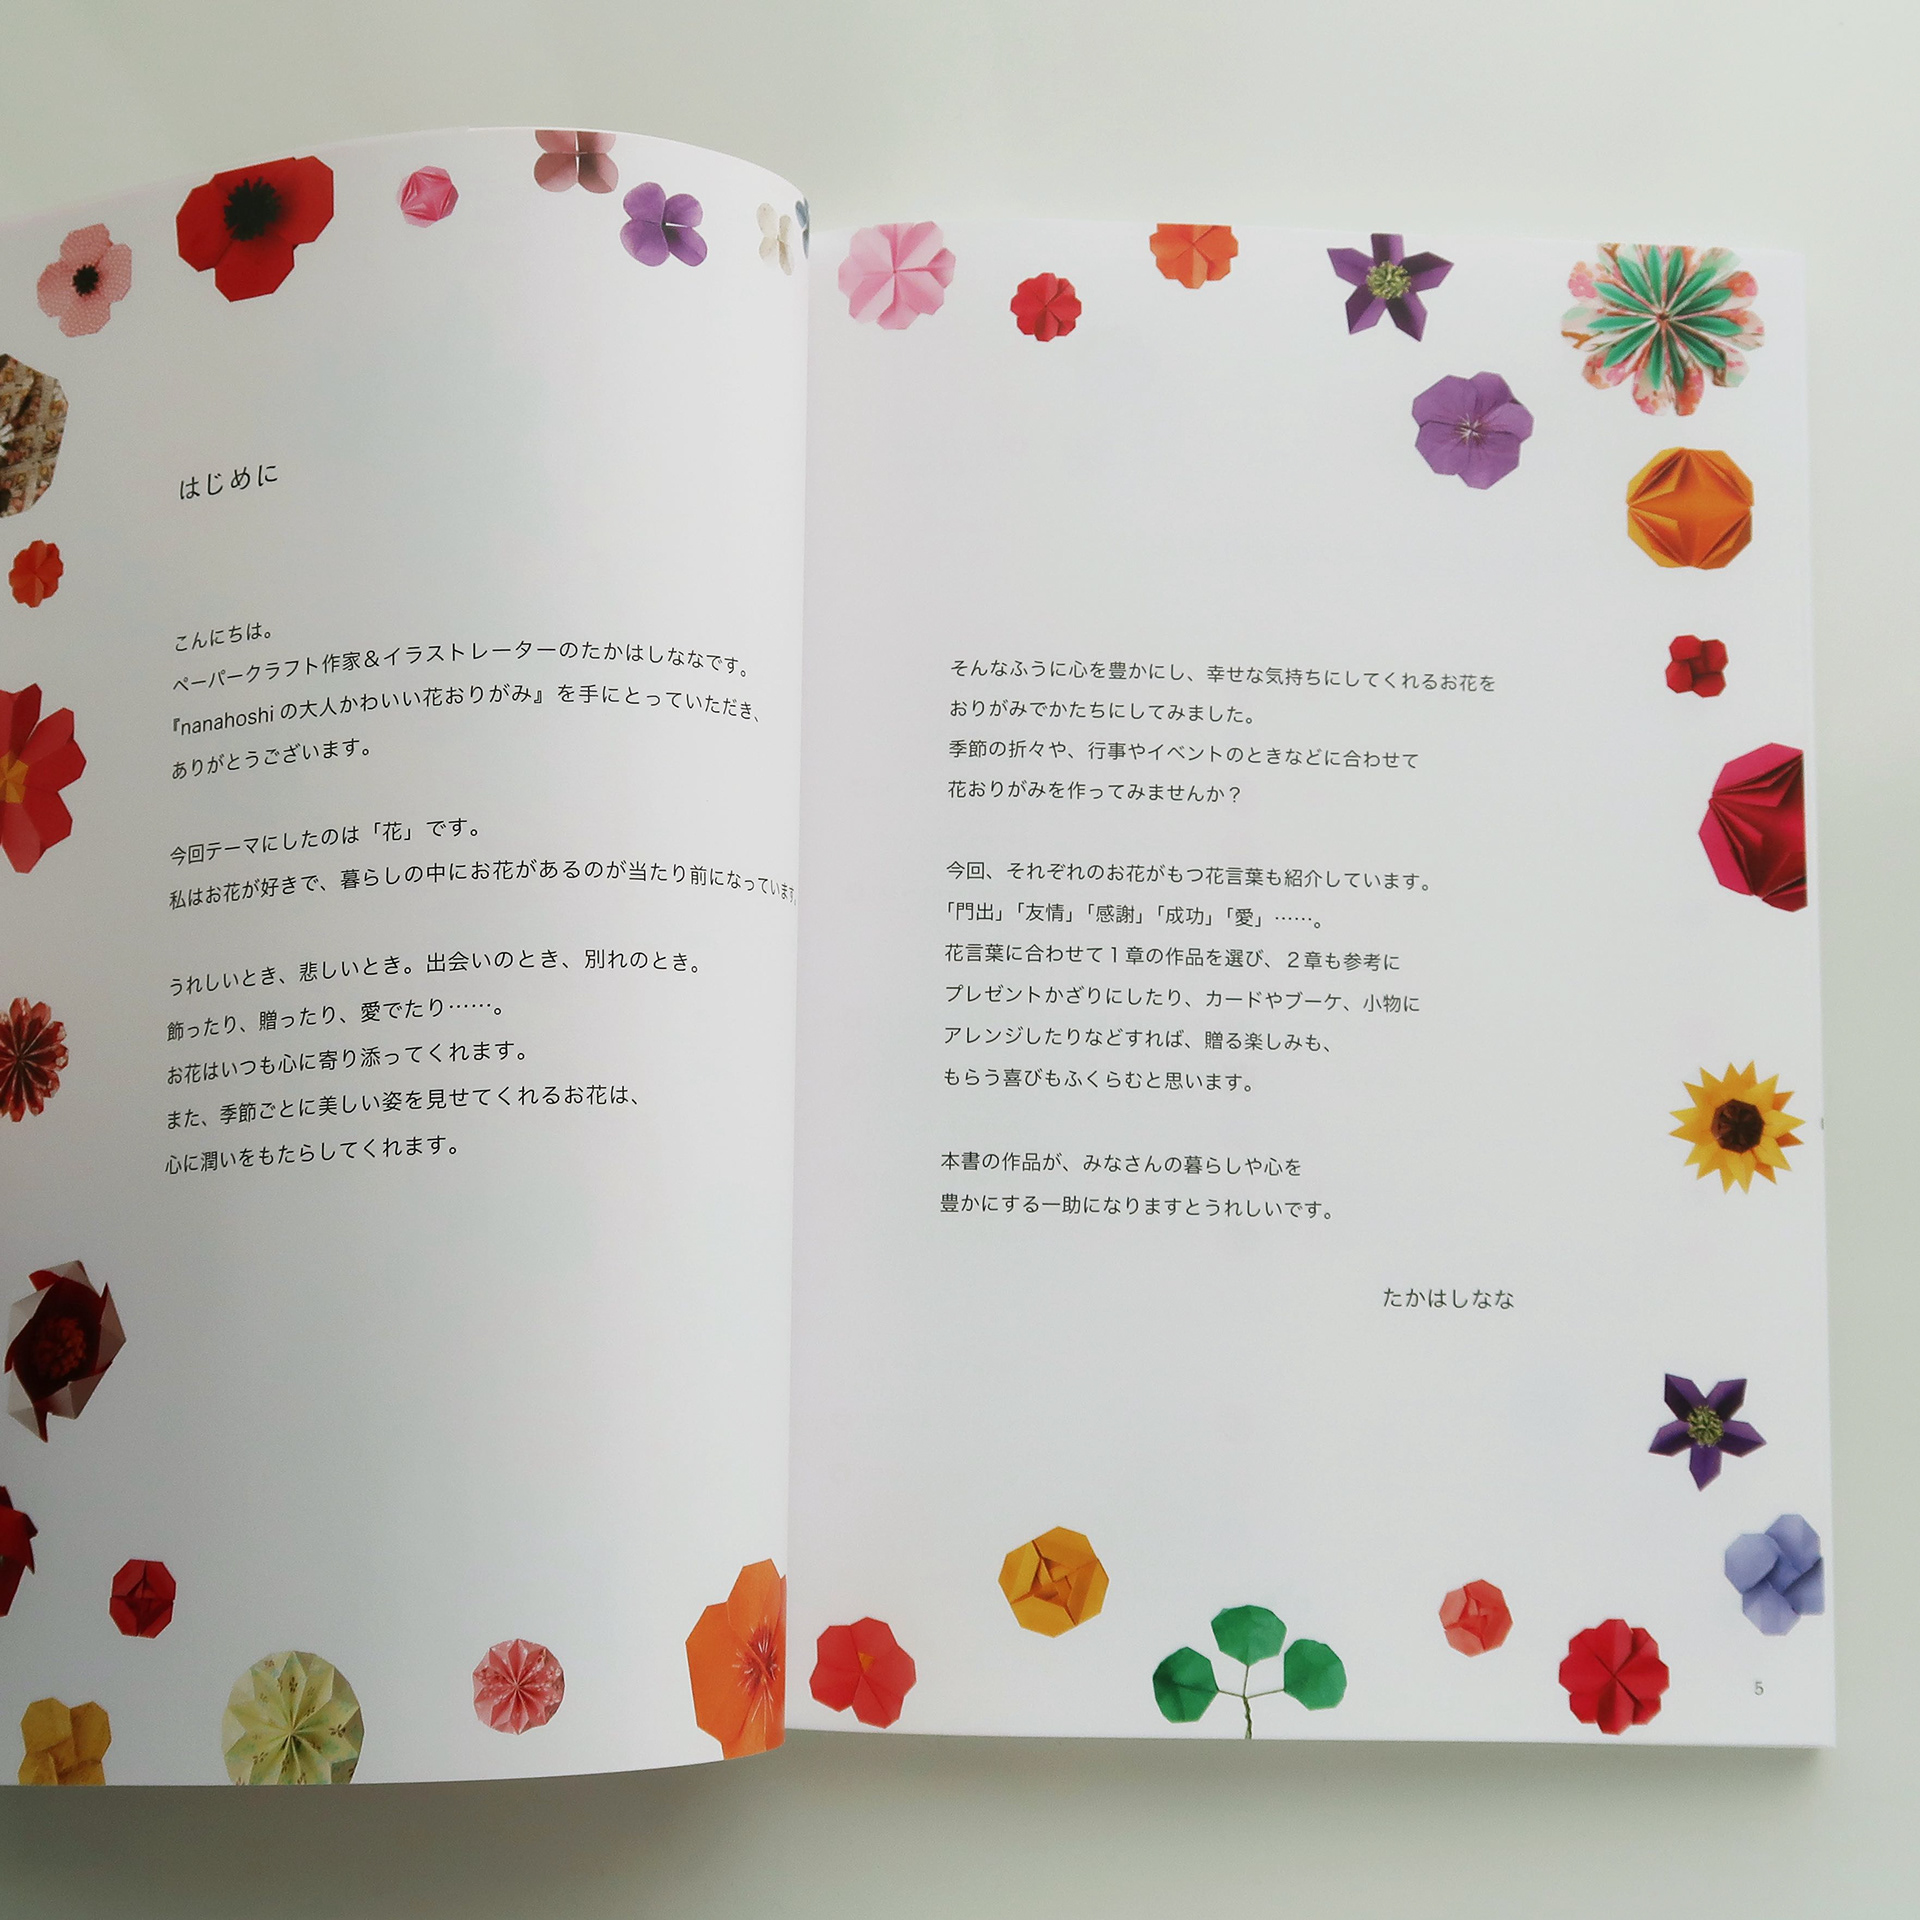 はじめに
こんにちは。
ペーパークラフト作家＆イラストレーターのたかはしななです。
『nanahoshi の大人かわいい花おりがみ』を手にとっていただき、
ありがとうございます。
今回テーマにしたのは「花」です。
私はお花が好きで、暮らしの中にお花があるのが当たり前になっています。
うれしいとき、悲しいとき。出会いのとき、別れのとき。
飾ったり、贈ったり、愛でたり……。
お花はいつも心に寄り添ってくれます。
また、季節ごとに美しい姿を見せてくれるお花は、
心に潤いをもたらしてくれます。
そんなふうに心を豊かにし、幸せな気持ちにしてくれるお花を
おりがみでかたちにしてみました。
季節の折々や、行事やイベントのときなどに合わせて
花おりがみを作ってみませんか？
今回、それぞれのお花がもつ花言葉も紹介しています。
「門出」「友情」「感謝」「成功」「愛」……。
花言葉に合わせて１章の作品を選び、２章も参考に
プレゼントかざりにしたり、カードやブーケ、小物に
アレンジしたりなどすれば、贈る楽しみも、
もらう喜びもふくらむと思います。
本書の作品が、みなさんの暮らしや心を
豊かにする一助になりますとうれしいです。
たかはしなな
5